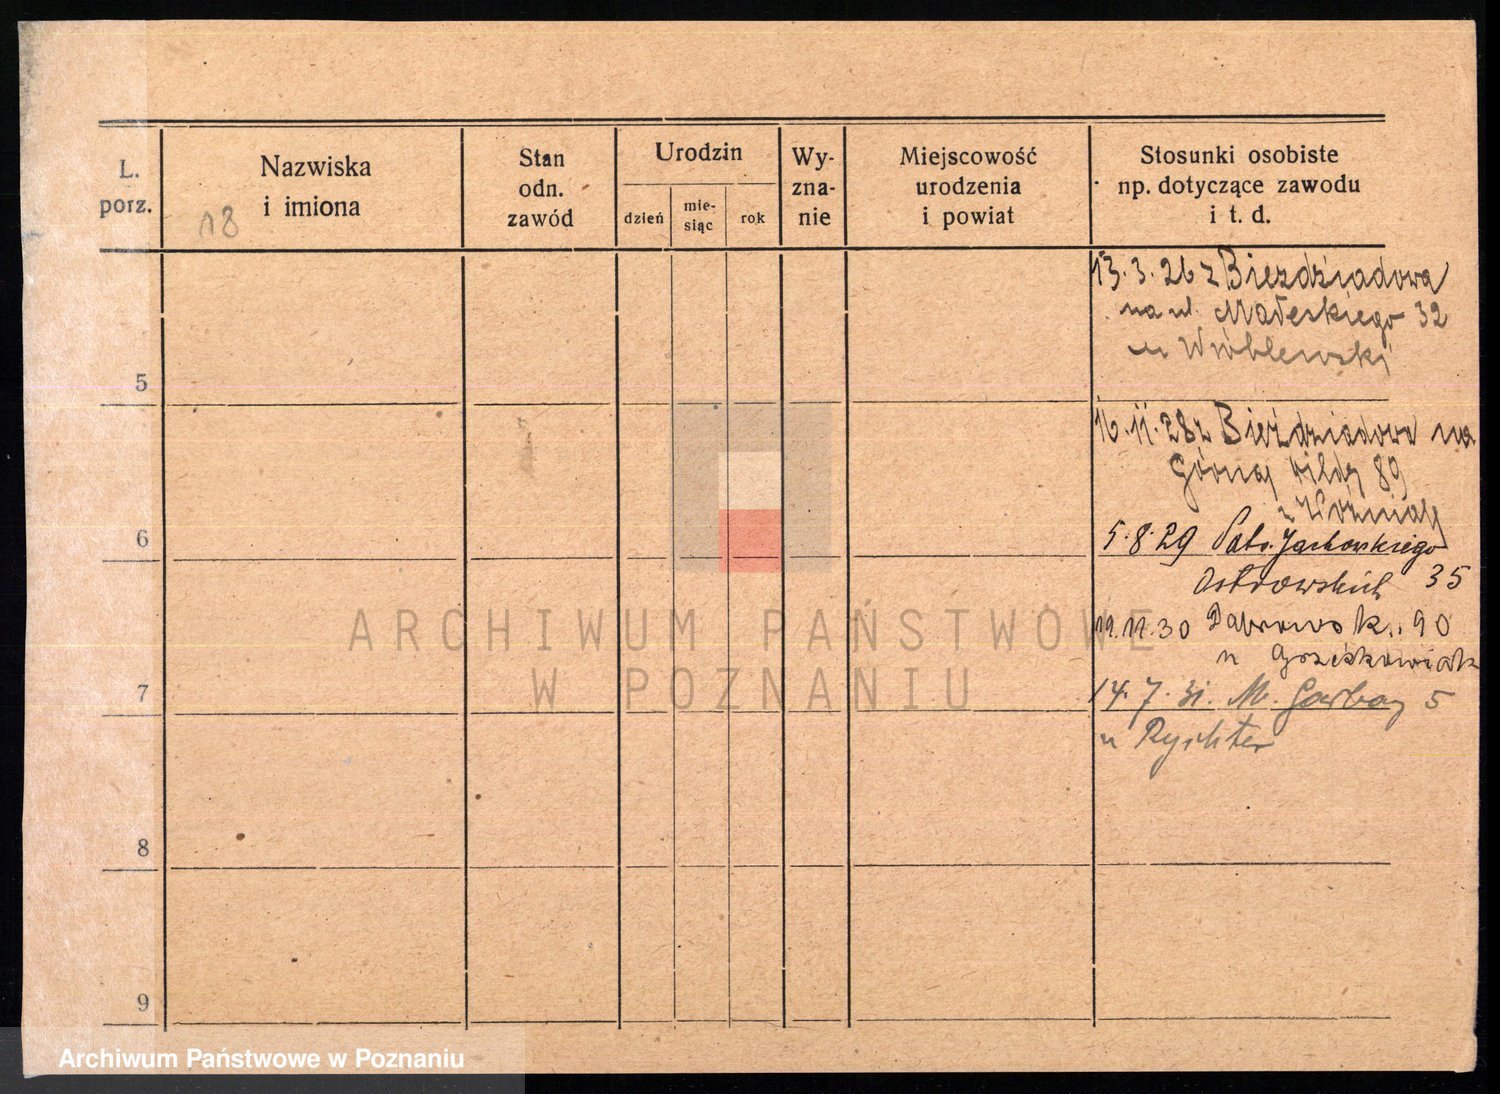 L. porz.
Nazwiska i imiona
18
Stan odn. zawód
Urodzin
dzień
mie- siąc
rok
Wy- zna- nie
Miejscowość urodzenia i powiat
Stosunki osobiste np. dotyczące zawodu i t. d.
13.3.26 z Bieździadowa
na ul. Małeckiego 32
u Wróblewski
5
16.11.28 z Bieździadowa na
Górnej Wildy 89
u Woźniak
6
5.8.29 Jachowskiego
Ostrowskich 35
11.11.30 Dąbrowsk.. 90
u Grześkowiak
7
14.7.31. M. Garbary 5
u Rychter
8
9
ARCHIWUM PAŃSTWOWE
W POZNANIU
Archiwum Państwowe w Poznaniu